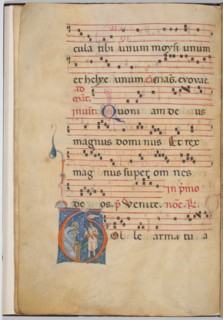 cula tibi unum moysi unum
et helye unum. euouae.
ad
Quoni am de us
magnus domi nus et rex
mag nus super om nes
in p̄mo
de os. p̄s Venite.
tolle arma tu a